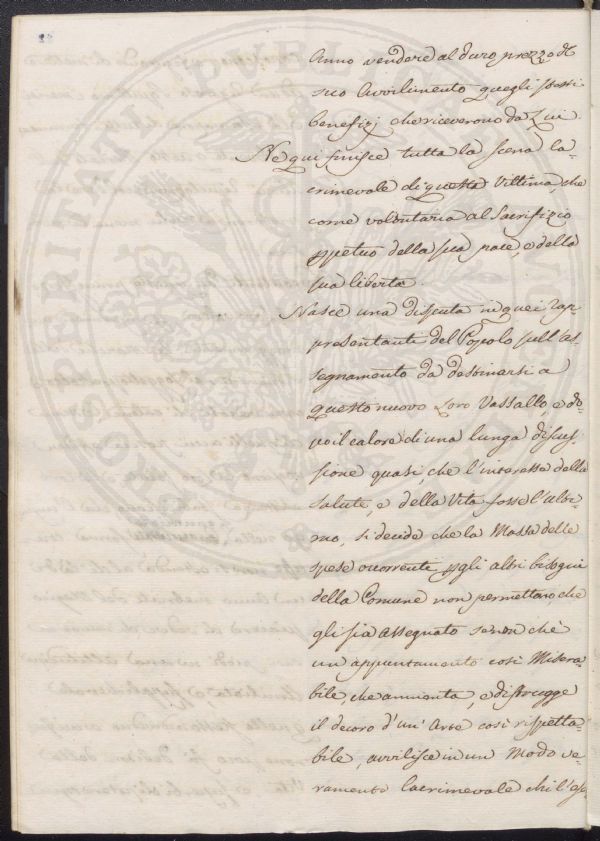 Anno vendere al duro prezzo di
suo Avvilimento quegli stessi
benefizj che riceverono da Lui.
Ne qui finisce tutta la scena la-
crimevale di questa Vittima, che
come volontaria al Sacrifizio
ppetuo della sua pace, e della
sua liberta.
Nasce una disputa in quei Rap-
presentanti del Popolo sull'as-
segnamento da destinarsi a
questo nuovo Loro Vassallo, e do-
po il calore di una lunga discus-
sione quasi, che l'interesse della
salute, e della Vita fosse l'ulti-
mo, si decide che la Massa delle
spese occorrenti pgli altri bisogni
della Comune non permettano che
gli sia assegnato senon chè
un appuntamento così Misera-
bile, che annienta, e distrugge
il decoro d'un' Arte così rispetta-
bile, avvilisce in un Modo ve-
ramente lacrimevale chi l'
PROSPERITATI PVBLICAE